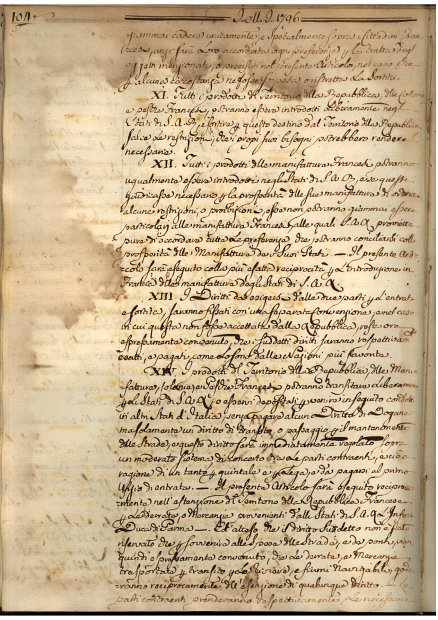 104
Dell' A. 1796
giammai cadere unicamente, e specialmente sopra i Cittadini Fran-
XI. Tutti i prodotti del Territorio della Repubblica, delle Colonie
e pesca Francese potranno essere introdotti liberamente negli
Stati di S.A.R., e sortire a questo destino dal Territorio della Repubblica
salve le restrizioni, che i propri suoi bisogni potrebbero rendere
necessarie.
XII. Tutti i prodotti delle manifatture Francesi potranno
ugualmente essere introdotti negli Stati di S.A.R., e se questa
giudicasse necessario per la prosperità delle sue manifatture di ordinare
alcune restrizioni, o proibizioni, esse non potranno giammai essere
particolari alle manifatture Francesi, alle quali S.A.R. promette
pure di accordare tutte le preferenze che potranno conciliarsi colla
prosperità delle Manifatture de' Suoi Stati. — Il presente Arti-
colo sarà eseguito colla più esatta reciprocità per l'introduzione in
Francia delle manifatture degli Stati di S.A.R.
XIII. I Diritti da esigersi dalle due parti per l'entrata
e sortita, saranno fissati con una separata Convenzione, e nel caso
in cui questa non fosse accettata dalla Repubblica, resta ora
espressamente convenuto, che i sudetti diritti saranno rispettivam.
esatti, e pagati come lo sono dalle Nazioni più favorite.
XIV. I prodotti del Territorio della Repubblica, delle Mani-
fatture, Colonie, e Pesca Francese potranno transitare liberamente
per gli Stati di S.A.R., o esservi depositati per venire in seguito condotti
in altri Stati d'Italia senza pagare alcun Diritto di Dogana
ma solamente un diritto di transito, o passaggio per il mantenimento
delle Strade, e questo diritto sarà immediatamente regolato sopra
un moderato sistema di concerto tra le parti contraenti, e in
ragione di un tanto per quintale e per Lega, e da pagarsi al primo
uffizio di entrata. — Il presente Articolo sarà eseguito reciproca-
mente nell'estensione del Territorio della Repubblica Francese
per le derrate, e Mercanzie provenienti dalli Stati di S.A.R. Infante
Duca di Parma. — E siccome il diritto sudetto non è stato
riservato che per sovvenire alle spese delle Strade, e de' ponti, vien
quindi espressamente convenuto, che le derrate, e Mercanzie
trasportate per transito per le riviere, e fiumi navigabili, godi-
ranno reciprocamente dell'esenzione di qualunque diritto. — Le
parti contraenti prenderanno rispettivamente le necessarie